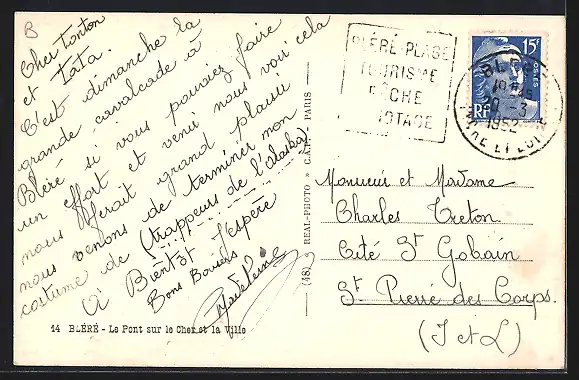 B
Cher Tonton
et Tata.
C'est dimanche la
grande cavalcade à
Bléré si vous pouviez faire
un effort et venir nous voir cela
nous ferait grand plaisir
nous venons de terminer mon
costume de (trappeurs de l'alaska)
A Bientôt j'espère
Bons Baisers
Madeleine
14 BLÉRÉ - Le Pont sur le Cher et la Ville
(48) REAL-PHOTO » C.A.P. - PARIS
BLÉRÉ-PLAGE
TOURISME
PÊCHE
CANOTAGE
BLÉRÉ
1952
15F
POSTES
RF
Monsieur et Madame
Charles Treton
Cité St Gobain
St Pierre des Corps.
(I et L)